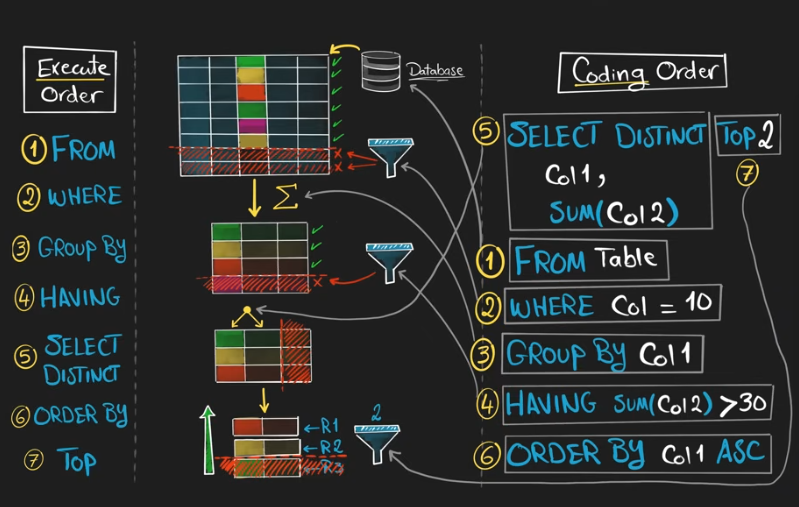 Execute
Order
1 FROM
2 WHERE
3 GROUP BY
4 HAVING
5 SELECT
DISTINCT
6 ORDER BY
7 TOP
Database
Σ
x
x
x
R1
R2
R3
2
Coding Order
5 SELECT DISTINCT TOP 2
Col1,
7
SUM(Col2)
1 FROM Table
2 WHERE Col = 10
3 GROUP BY Col1
4 HAVING SUM(Col2) >30
6 ORDER BY Col1 ASC